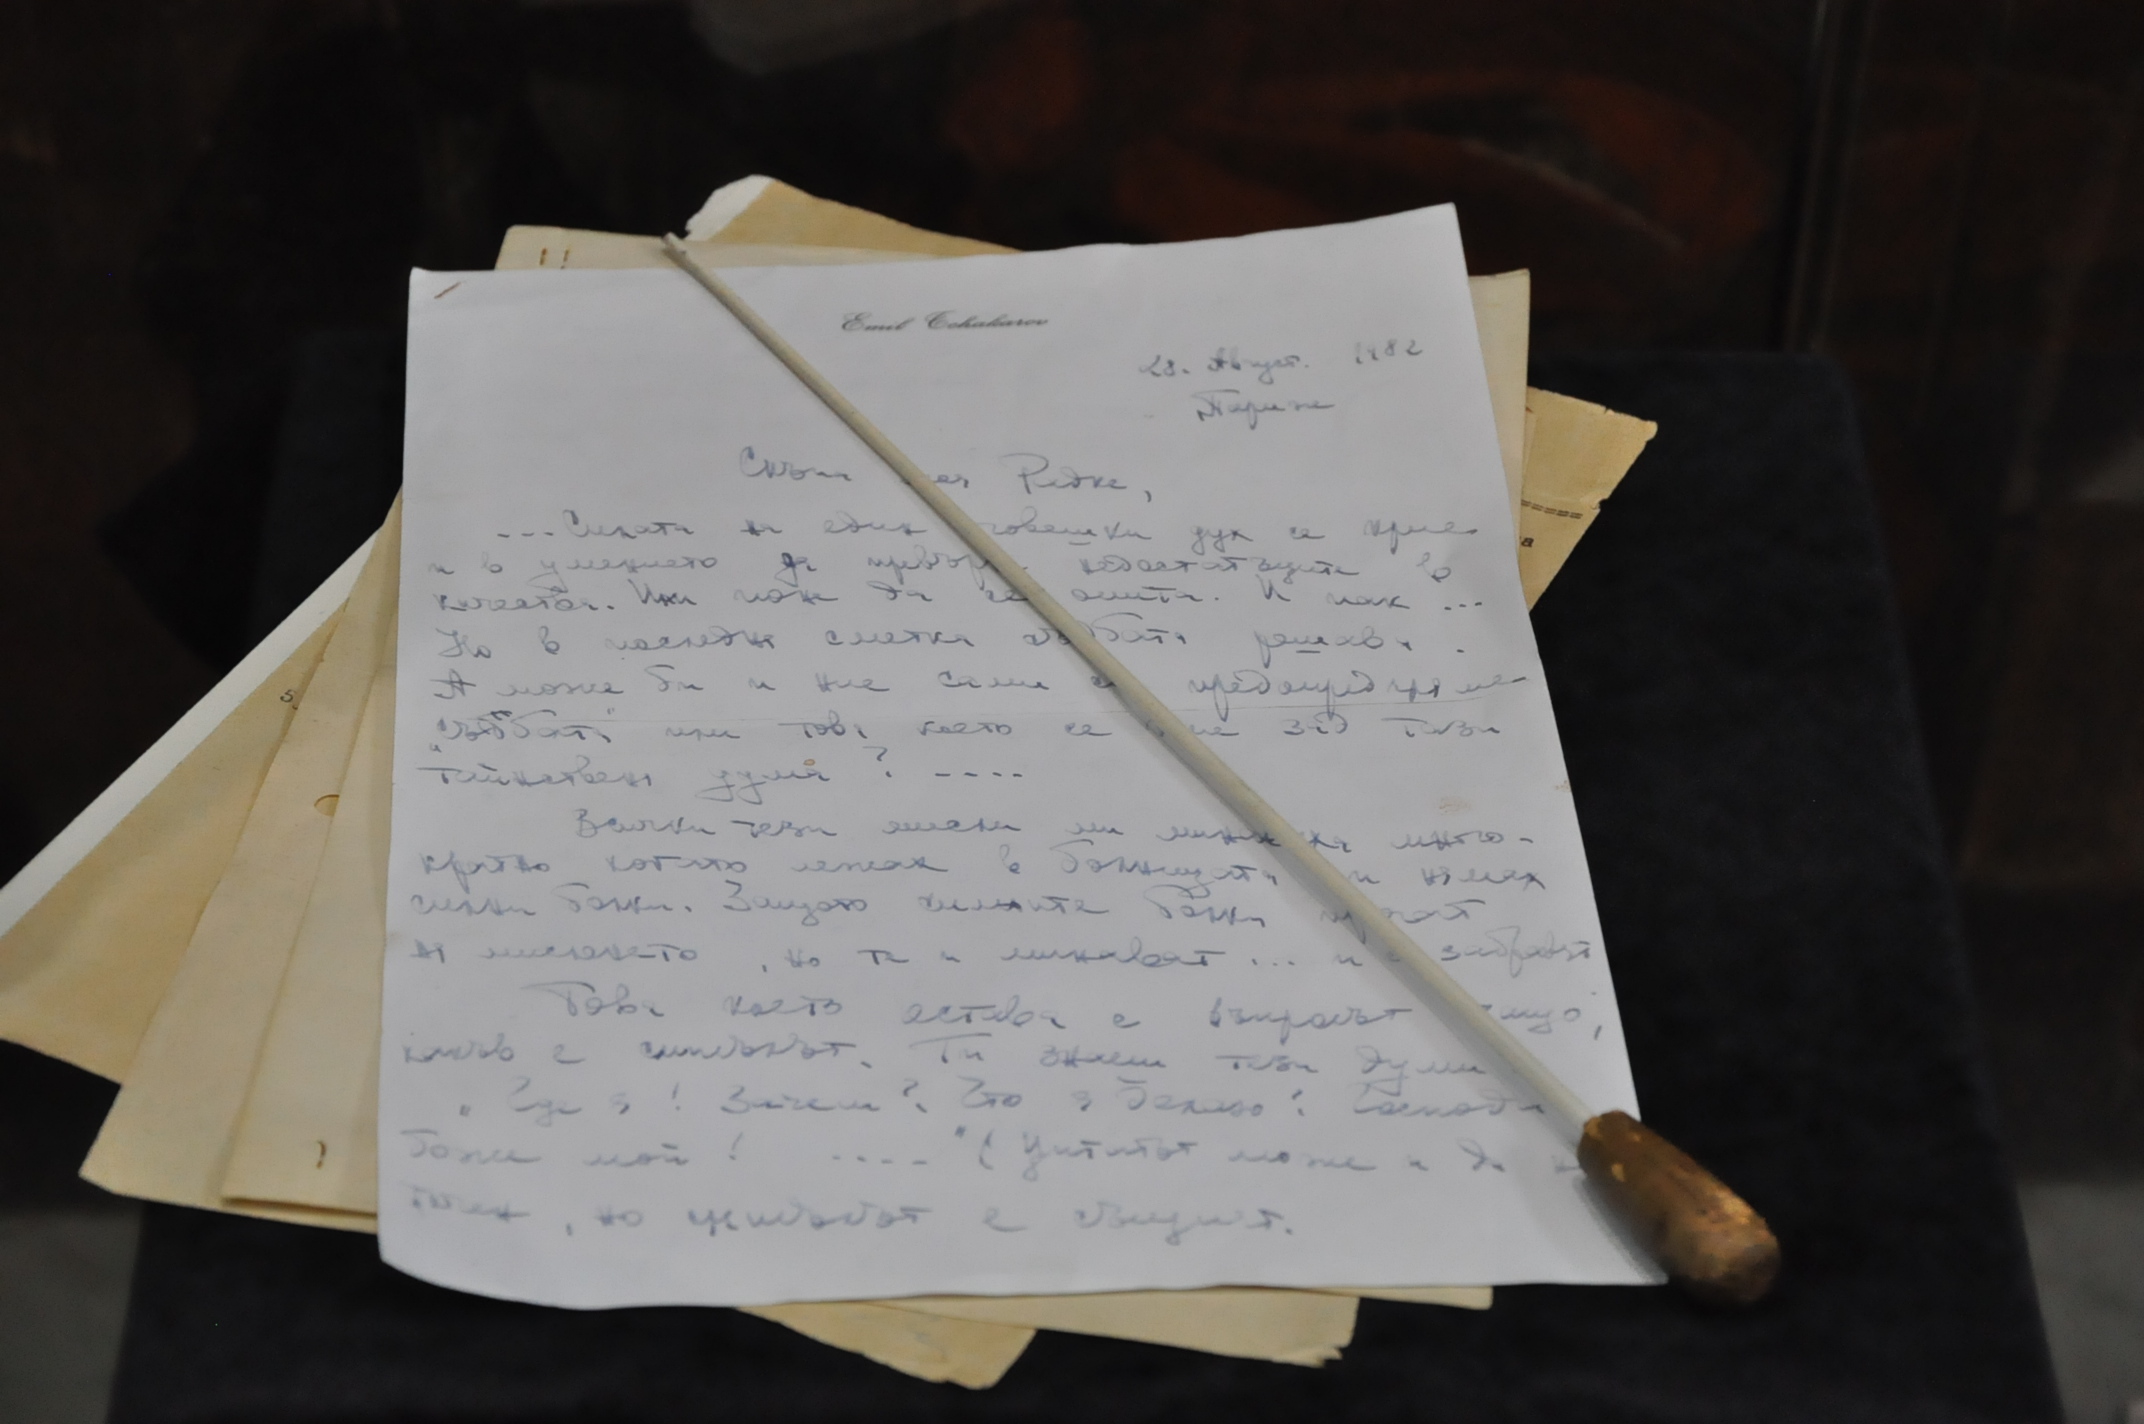 Emil Tchakarov
28. Август. 1982
Париж
Скъпа моя Радке,
---Силата на един човешки дух се крие
и в умението да превърне недостатъците в
качества. Или поне да се опита. И пак ...
Но в последна сметка съдбата решава.
А може би и ние сами си предопределяме
"съдбата" или това което се крие зад тази
тайнствена дума? ----
Всички тези мисли ми минаваха много-
кратно когато лежах в болницата и нямах
силни болки. Защото силните болки пречат
на мисленето, но те и минават ... и се забравят
Това което остава е въпросът защо,
какъв е смисълът. Ти знаеш тези думи
„Где я! Зачем? Что я делаю? Господи
Боже мой! ----" (Цитатът може и да не
точен, но смисълът е същият.